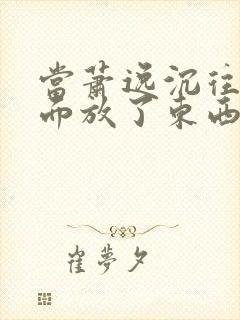 當蕭逸沉往
而放了東西
崔夢夕